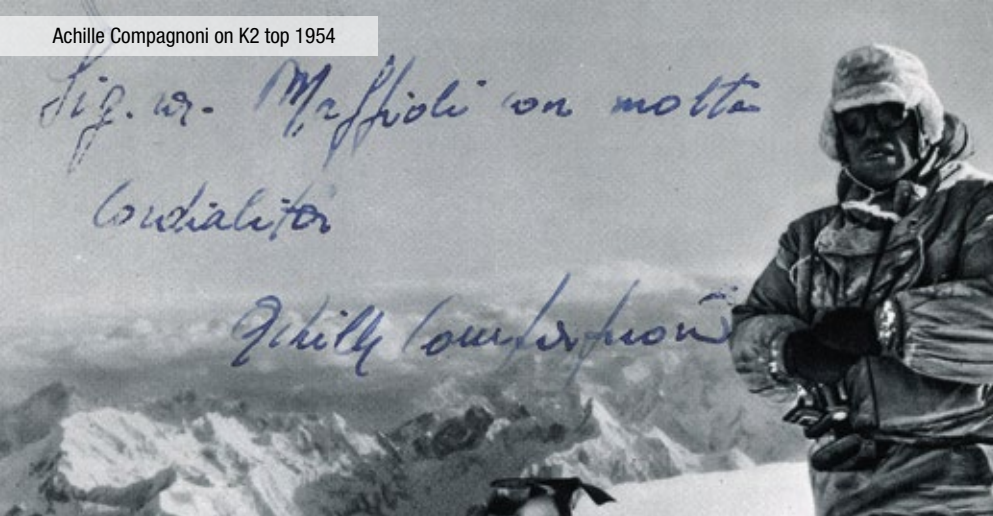 Achille Compagnoni on K2 top 1954
Sig. Maffioli con molta
Cordialità
Achille Compagnoni